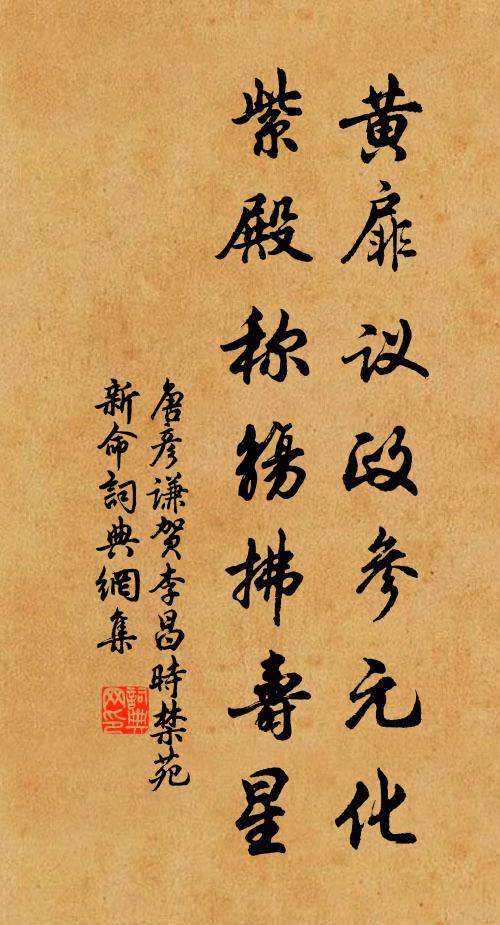 黄扉议政参元化
紫殿称觞拂寿星
唐彦谦贺李昌时禁苑
新命詞典網集
詞典网印